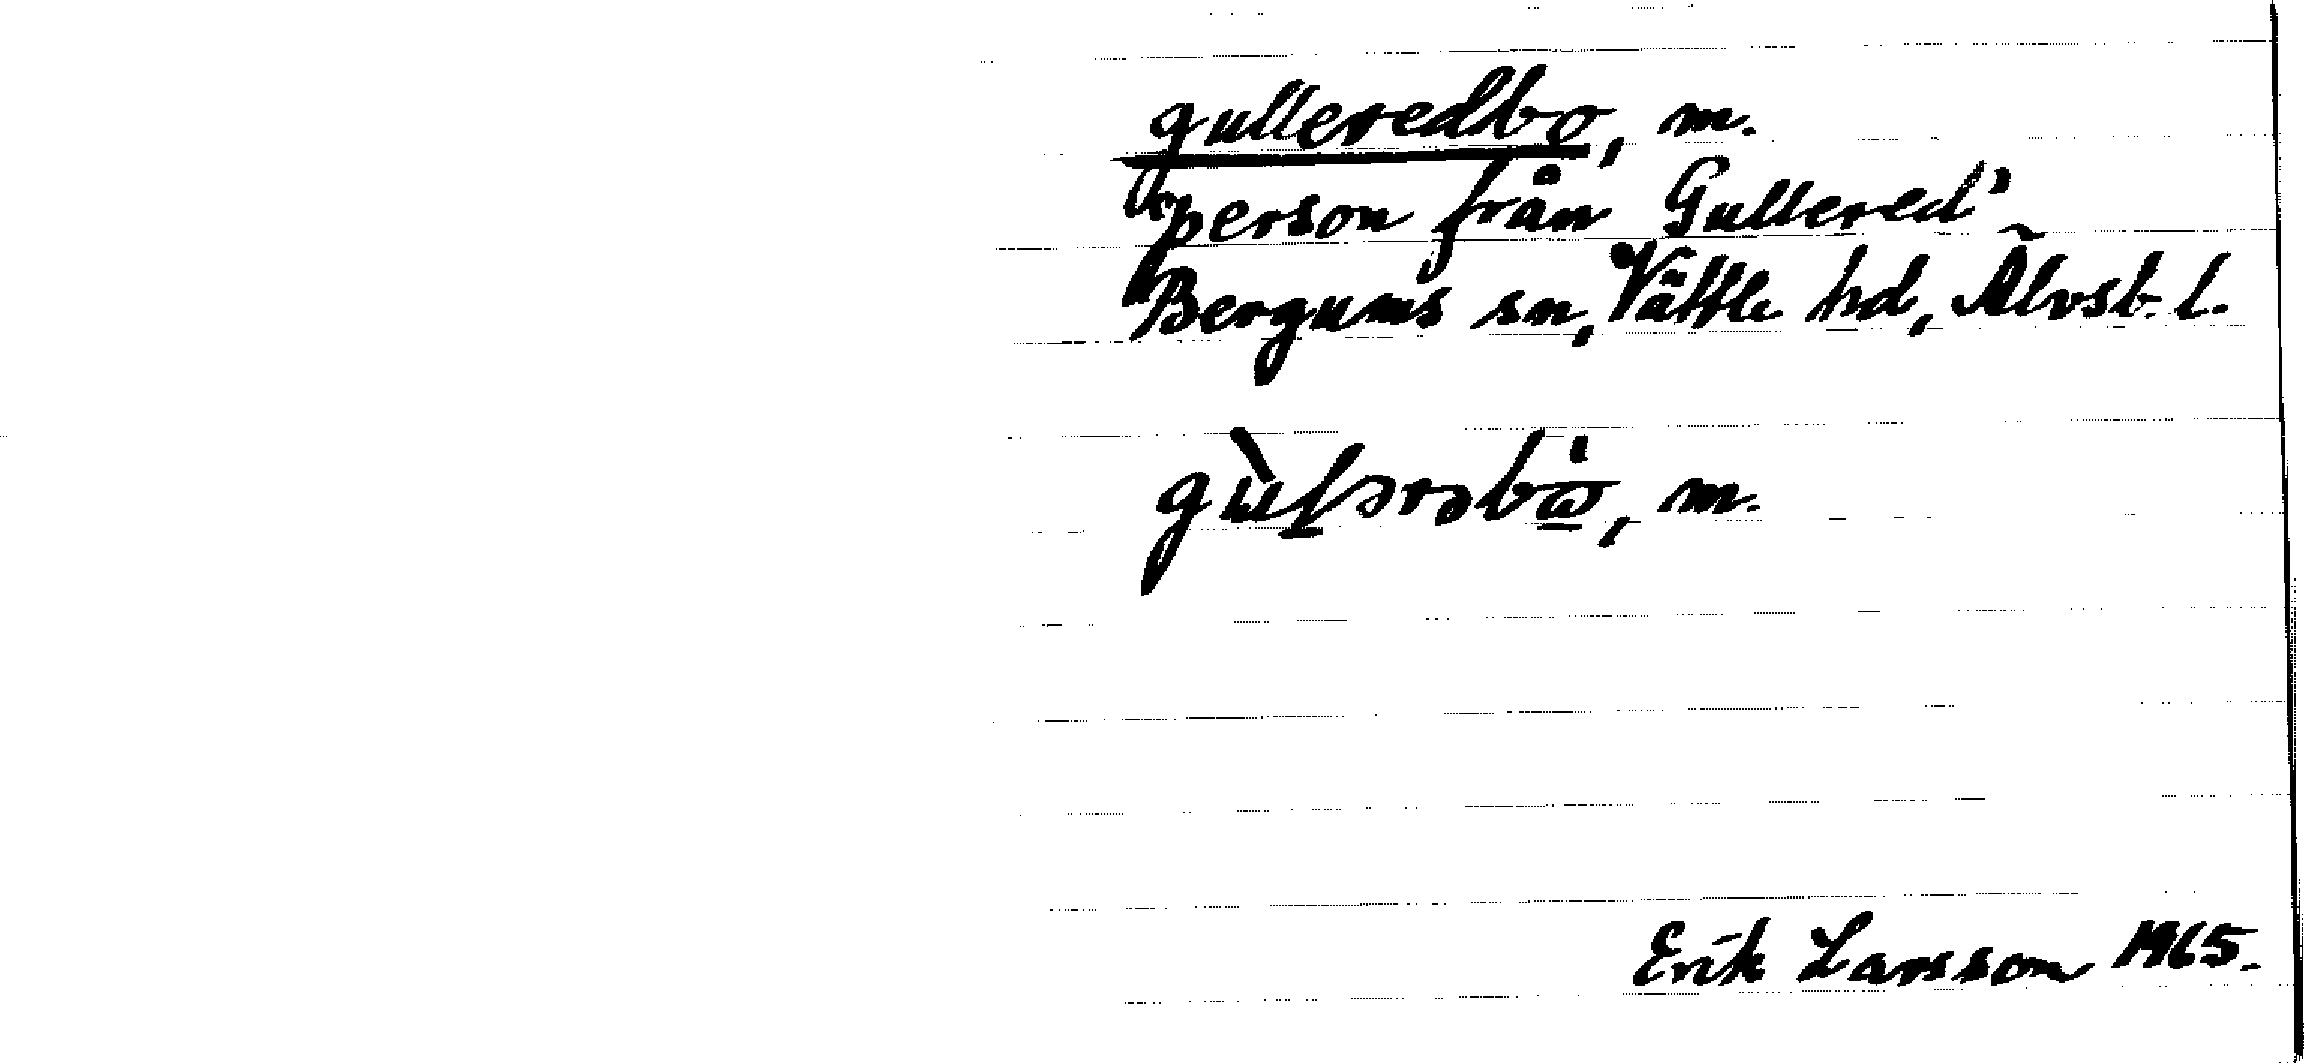 gulleredbo, m.
"person från Gullered"
Bergums sn, Vättle hd, Älvsb. l.
Erik Larsson 1965.